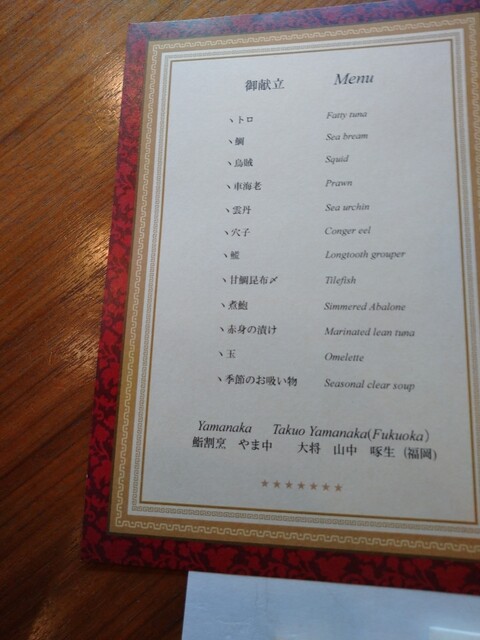 御献立 Menu
、トロ Fatty tuna
、鯛 Sea bream
、烏賊 Squid
、車海老 Prawn
、雲丹 Sea urchin
、穴子 Conger eel
、 Longtooth grouper
、甘鯛昆布〆 Tilefish
、煮鮑 Simmered Abalone
、赤身の漬け Marinated lean tuna
、玉 Omelette
、季節のお吸い物 Seasonal clear soup
Yamanaka Takuo Yamanaka(Fukuoka)
鮨割烹 やま中 大将 山中 啄生 (福岡)